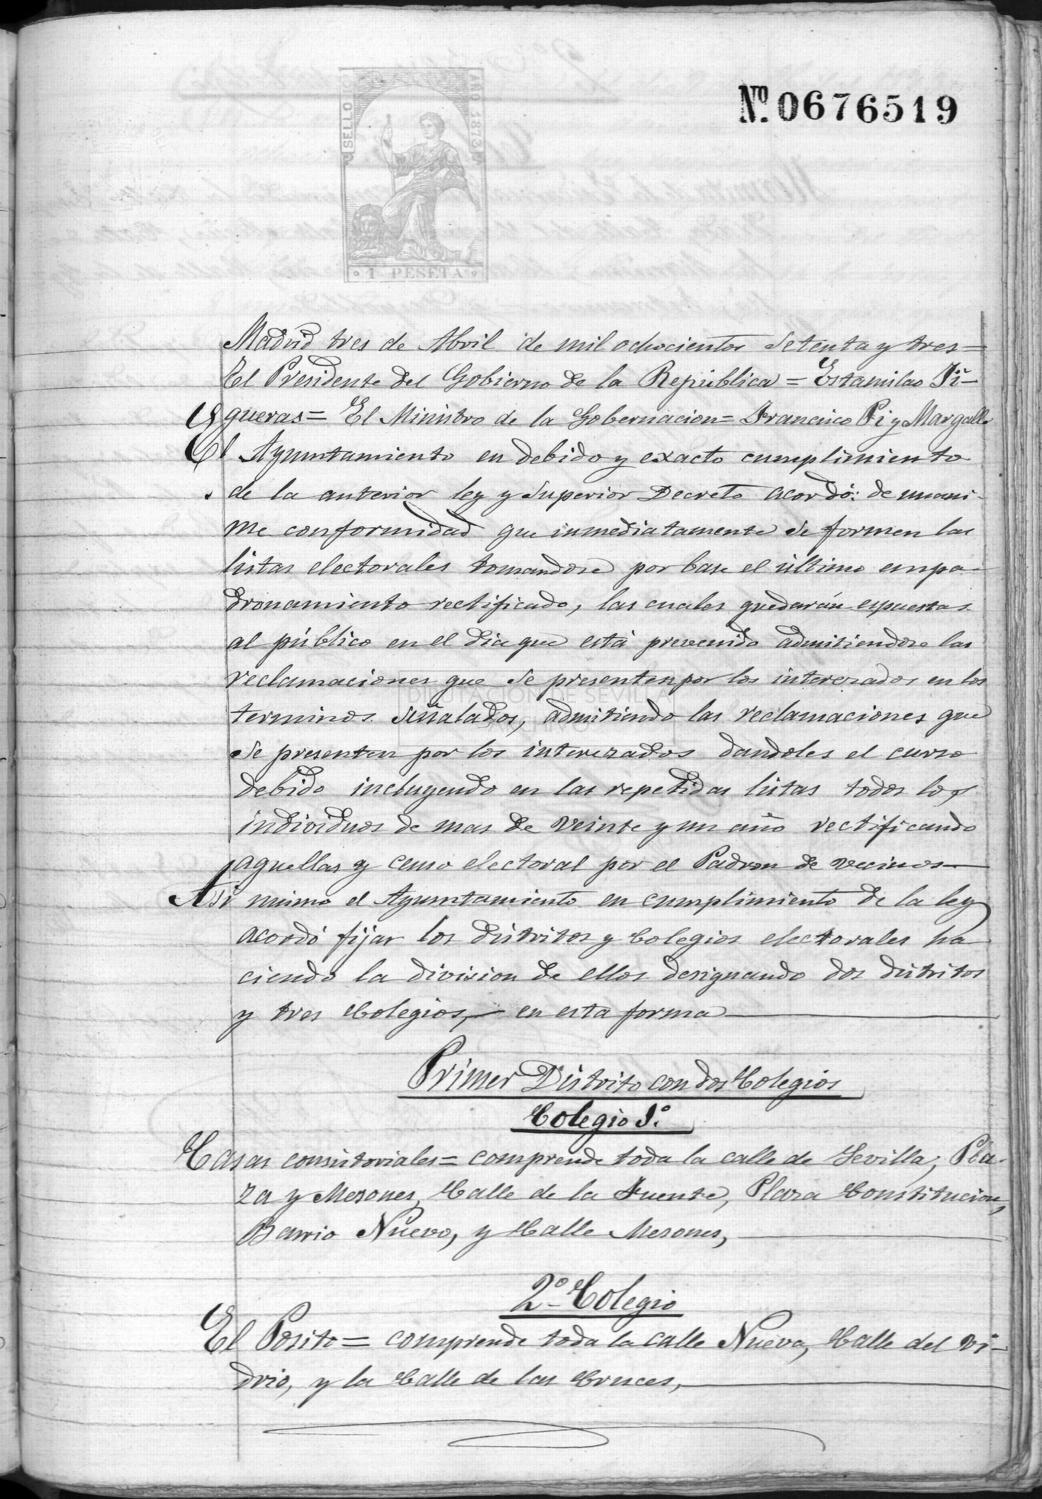 Nº. 0676519
SELLO
AÑO 1873
1 PESETA
Madrid tres de Abril de mil ochocientos setenta y tres=
El Presidente del Gobierno de la República = Estanislao Fi-
gueras= El Ministro de la Gobernacion= Francisco Pi y Margall.
El Ayuntamiento en debido y exacto cumplimiento
de la anterior ley y Superior Decreto acordó: de unani-
me conformidad que inmediatamente se formen las
listas electorales tomandose por base el último empa-
dronamiento rectificado, las cuales quedarán espuestas
al público en el dia que está prevenido admitiendose las
reclamaciones que se presenten por los interezados en los
terminos señalados, admitiendo las reclamaciones que
se presenten por los interezados dandoles el curso
debido incluyendo en las repetidas listas todos los
individuos de mas de veinte y un año rectificando
aquellas y censo electoral por el Padron de vecinos
Asi mismo el Ayuntamiento en cumplimiento de la ley
acordó fijar los distritos y Colegios electorales ha
ciendo la division de ellos designando dos distritos
y tres Colegios, en esta forma
Primer Distrito con dos Colegios
Colegio 1º.
Casas consistoriales= comprende toda la calle de Sevilla, Pla-
za y Mesones, Calle de la Fuente, Plaza Constitucion,
Barrio Nuevo, y Calle Mesones,
2º Colegio
El Posito= comprende toda la calle Nueva, Calle del Vi-
drio, y la Calle de las Cruces,
DIPUTACIÓN DE SEVILLA